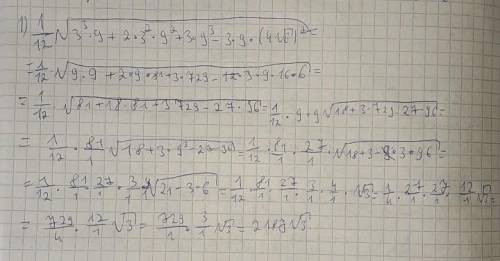 1) 1/12 √(3³·9 + 2·3²·9² + 3·9³ - 3·9·(4√6)²) =
= 1/12 · √(9·9 + 2·9·81 + 3·729 - 12·3·9-16·6) =
= 1/12 · √(81 + 18·81 + 3·729 - 27·96) = 1/12 · 9·9 √(18+3·729·27·96) =
= 1/12 · 81/1 √(18+3·9²-27·96) = 1/12 · 81/1 · 27/1 · √(18+3·3·96) =
= 1/12 · 81/1 · 27/1 · 3/1 · √(21-3·6) = 1/12 · 81/1 · 27/1 · 3/1 · 4/1 · √3 = 1/4 · 27/1 · 27/1 · 12/1 √3 =
= 729/4 · 12/1 √3 = 729/1 · 3/1 √3 = 2187√3